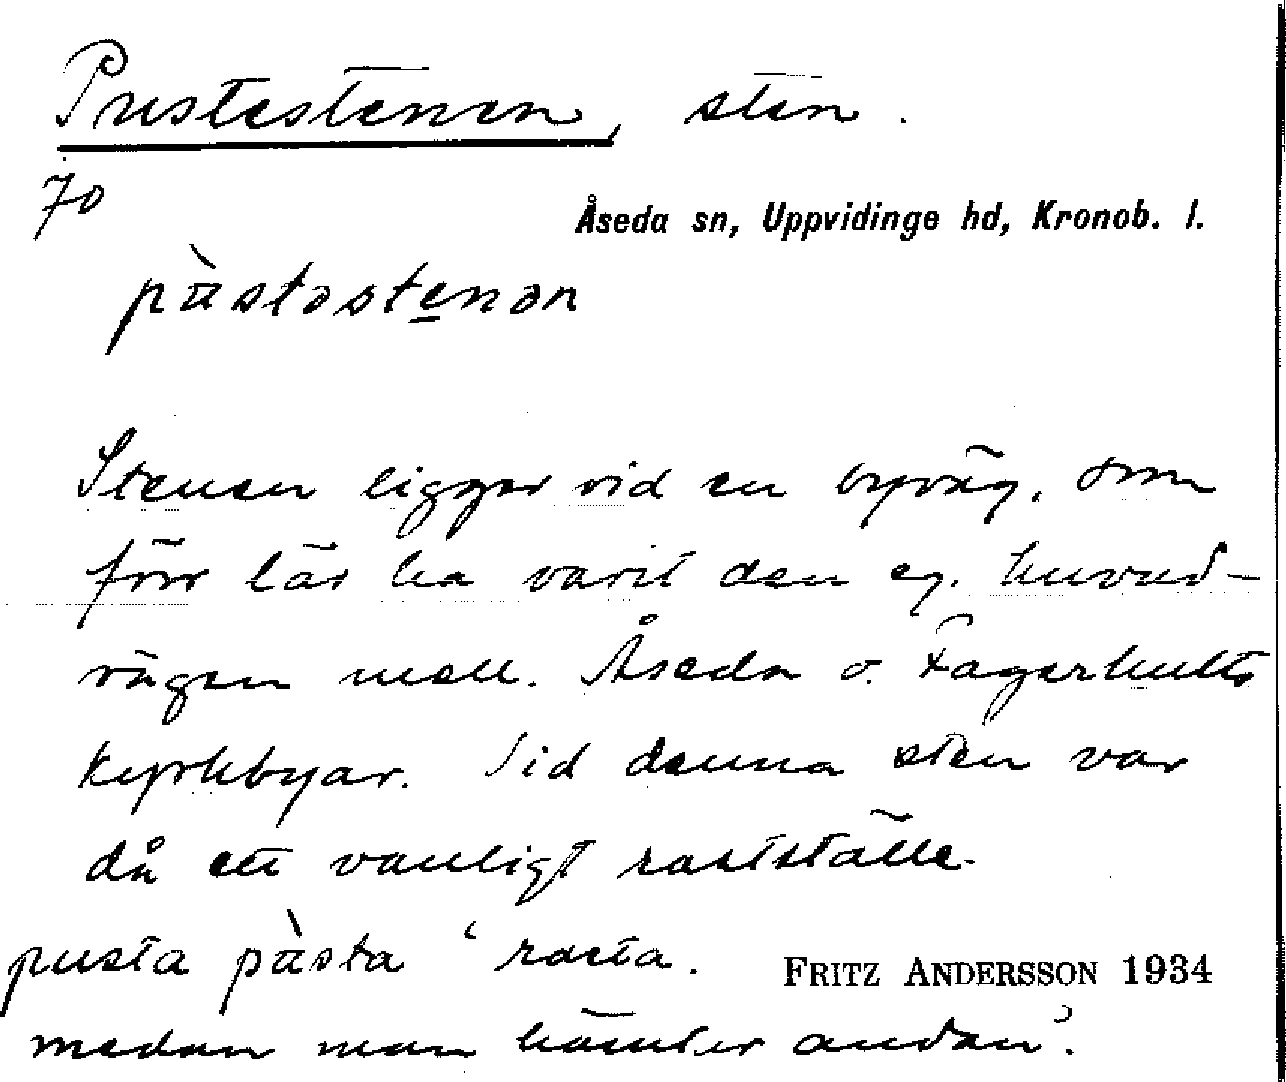 Pustestenen, sten.
70
Åseda sn, Uppvidinge hd, Kronob. l.
pùstəstenən
Stenen ligger vid en byväg, som
förr lär ha varit den eg. huvud-
vägen mell. Åseda o. Fagerhults
kyrkbyar. Vid denna sten var
då ett vanligt rastställe.
pusta pùsta ‘rasta.
FRITZ ANDERSSON 1934
medan man hämter andan’.